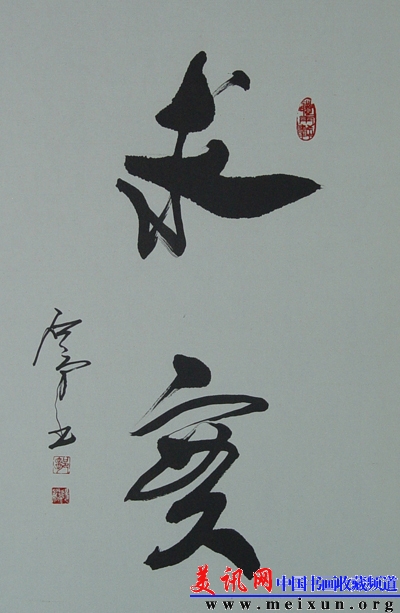 求實
美讯网 中国书画收藏频道
www.meixun.org